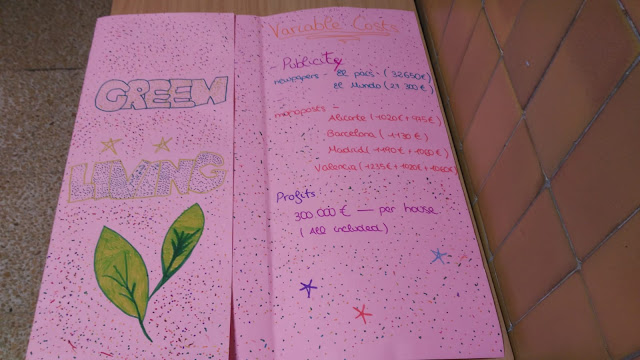 GREEN
LIVING
Variable Costs
- Publicity
newspapers - el país - (32650€)
el Mundo (21 300€)
Alicante (1020€ + 995€)
Barcelona (1130€)
Madrid (1190€ + 1060€)
Valencia (1235€ + 1020€ + 1060€)
Profits
300 000 € — per house
(All included)